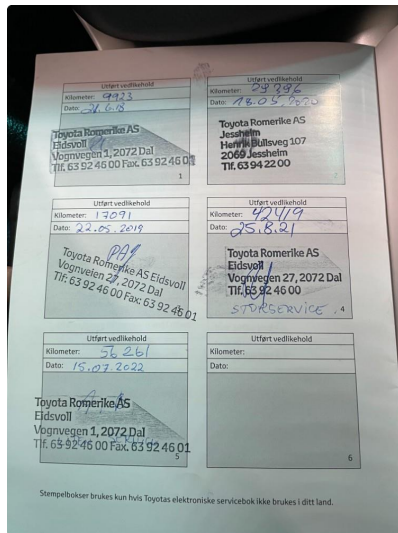 Utført vedlikehold
Kilometer: 9923
Dato: 21.6.18
Toyota Romerike AS
Eidsvoll
Vognvegen 1, 2072 Dal
Tlf. 63 92 46 00 Fax. 63 92 46 01
1
Utført vedlikehold
Kilometer: 29396
Dato: 18.05.2020
Toyota Romerike AS
Jessheim
Henrik Bullsveg 107
2069 Jessheim
Tlf. 63 94 22 00
Utført vedlikehold
Kilometer: 17091
Dato: 22.05.2019
Toyota Romerike AS Eidsvoll
Vognveien 27, 2072 Dal
Tlf: 63 92 46 00 Fax: 63 92 46 01
Utført vedlikehold
Kilometer: 42419
Dato: 25.8.21
Toyota Romerike AS
Eidsvoll
Vognvegen 27, 2072 Dal
Tlf. 63 92 46 00
STORSERVICE.
4
Utført vedlikehold
Kilometer: 56261
Dato: 15.07.2022
Toyota Romerike AS
Eidsvoll
Vognvegen 1, 2072 Dal
Tlf. 63 92 46 00 Fax. 63 92 46 01
5
Utført vedlikehold
Kilometer:
Dato:
6
Stempelbokser brukes kun hvis Toyotas elektroniske servicebok ikke brukes i ditt land.